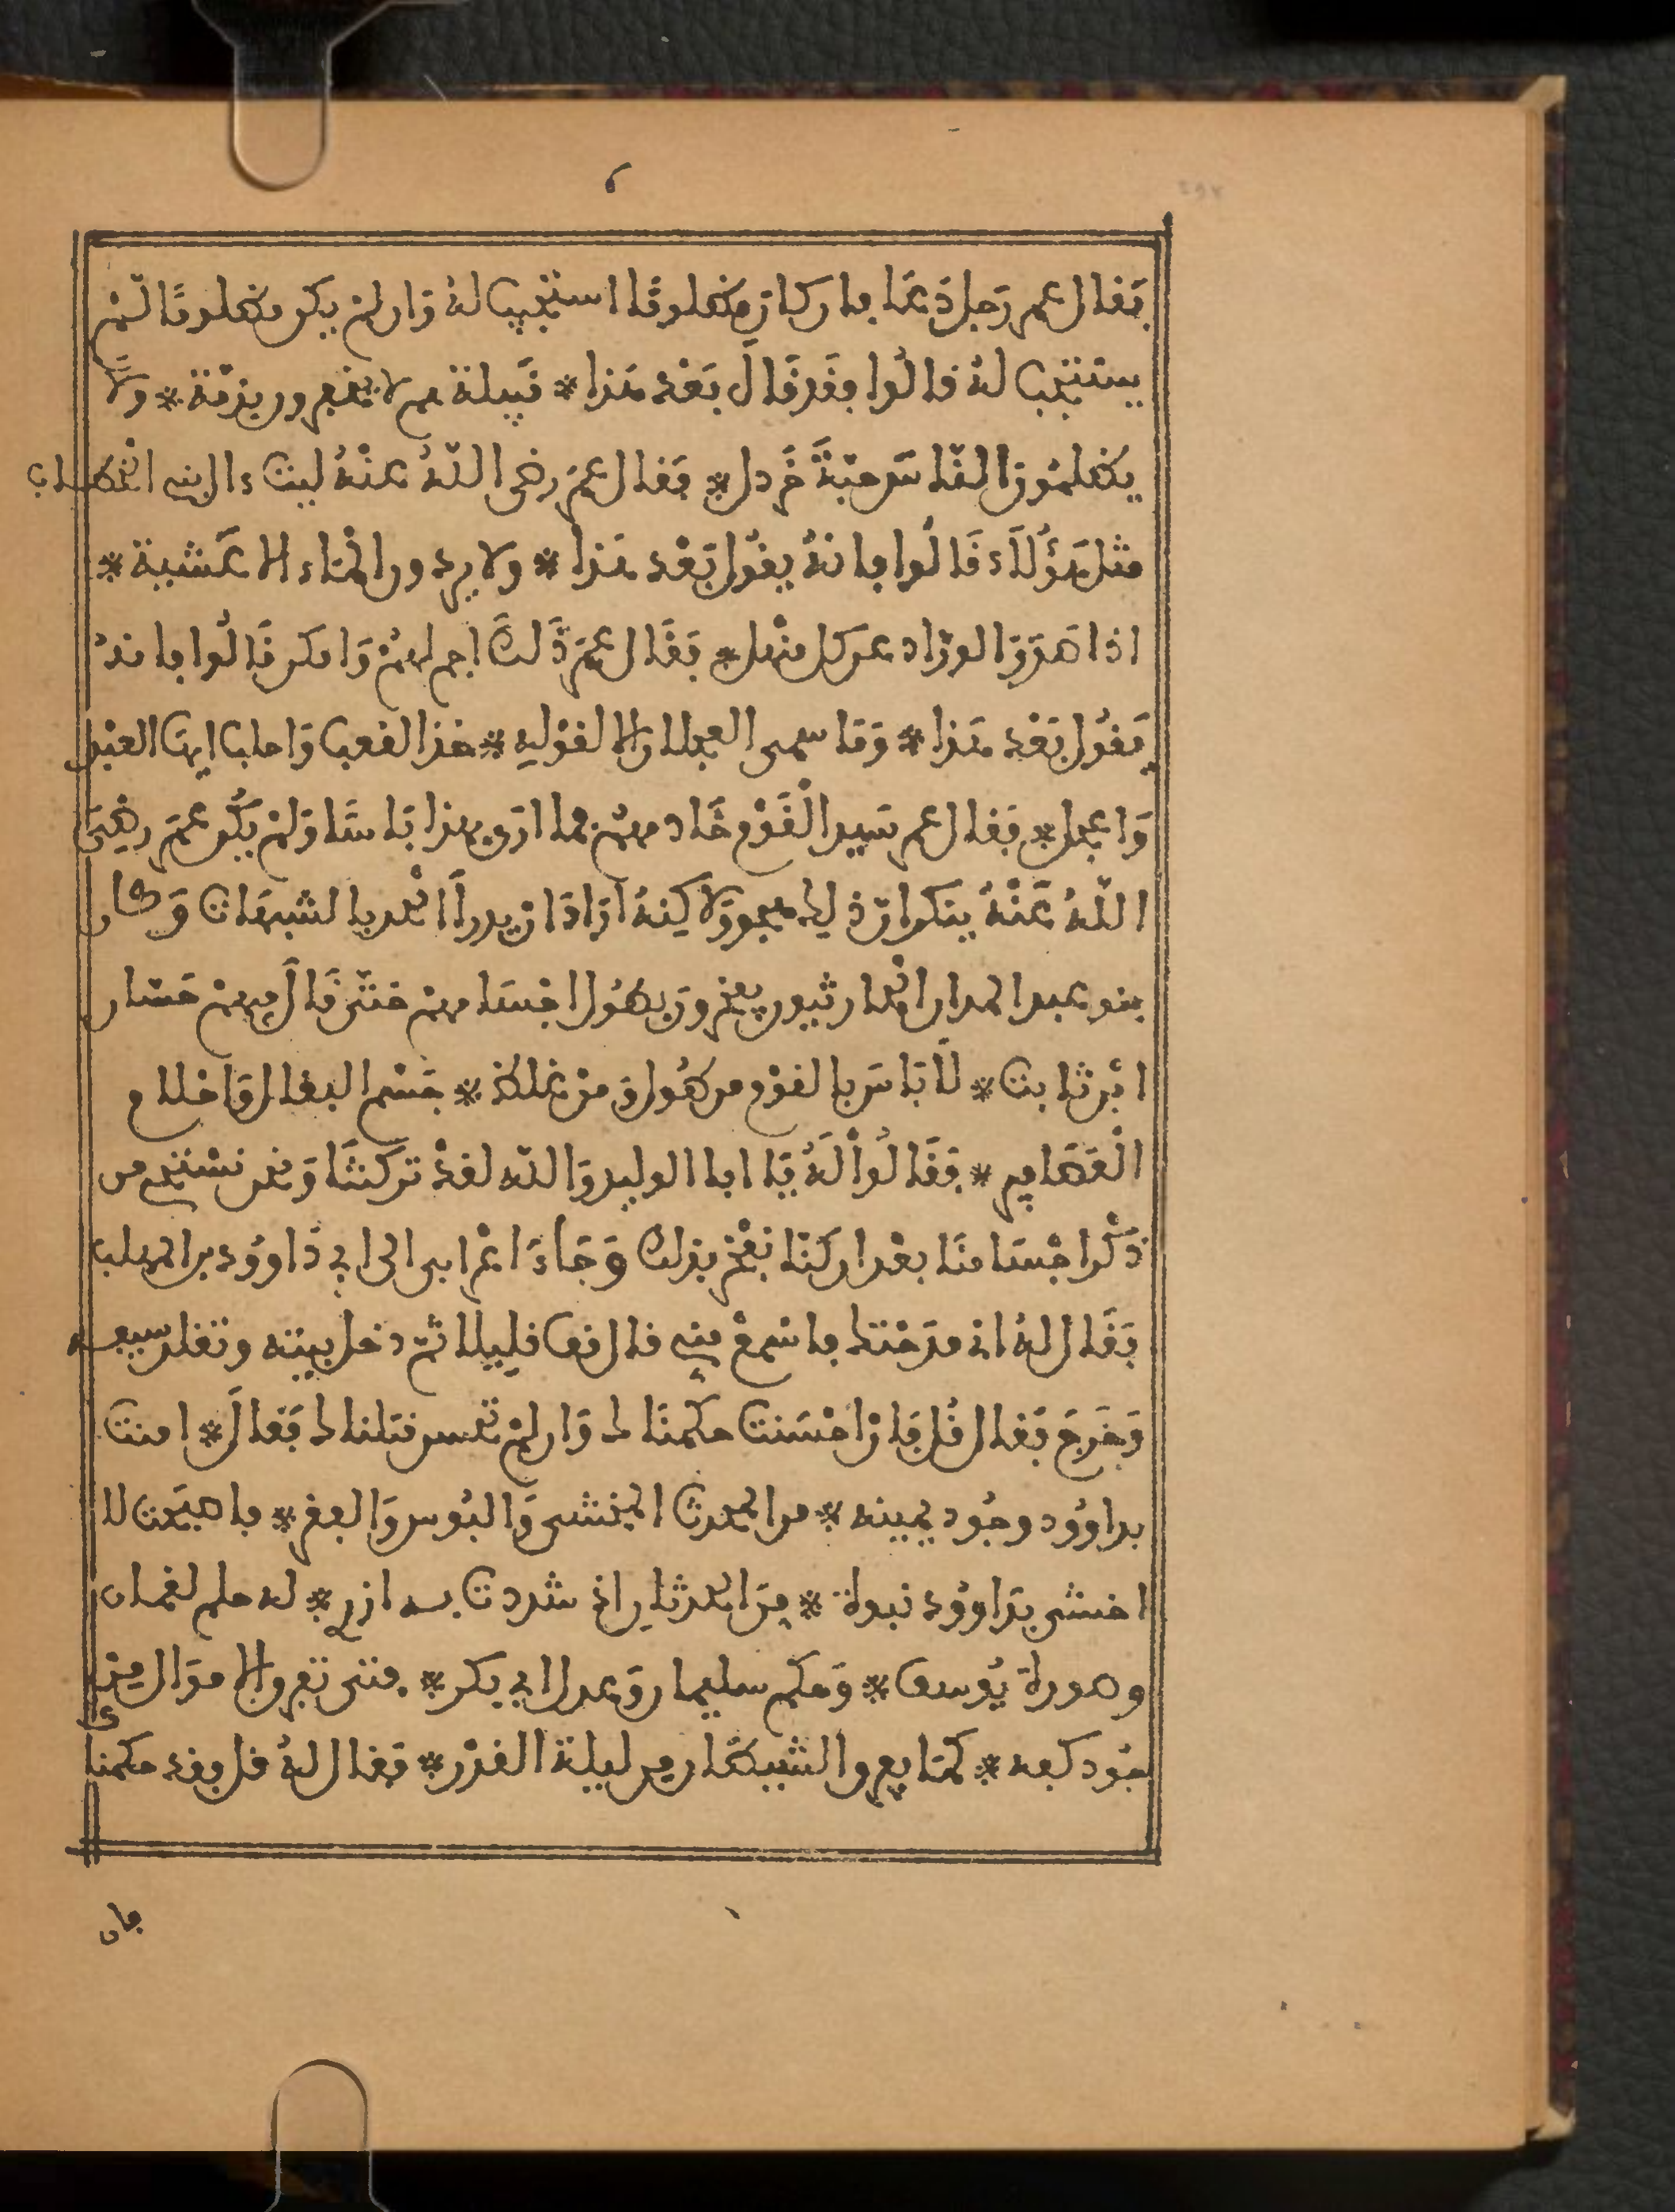 فقال عمر رجل دعا فان كان مظلوما استجيب له وان لم يكن مظلوما لم
يستجب له قالوا فقد قال بعد هذا * قبيلة لا يغدرون بذمة * ولا
يظلمون الناس حبة خردل * فقال عمر رضي الله عنه ليت ءال الخطاب
مثل هؤلاء قالوا فانه يقول بعد هذا * ولا يردون الماء الا عشية *
اذا صدر الوراد عن كل منهل * فقال عمر ذلك اجم لهم وامكن قالوا فانه
يقول بعد هذا * وما سمى العجلان الا لقوليه * خذ القعب واحلب ايها العبد
واعجل * فقال عمر سيد القوم خادمهم فما ارى بهذا باسا ولم يكن عمر رضي
الله عنه ينكر ان ذلك هجو ولاكنه اراد ان يدرأ الحد بالشبهات وكان
بنو عبد المدان الحارثيون يفخرون بطول اجسامهم حتى قال فيهم حسان
ابن ثابت * لا باس بالقوم من طول ومن غلظ * جسم البغال واحلام
العصافير * فقالوا له يا ابا الوليد والله لقد تركتنا ونحن نستحي من
ذكر اجسامنا بعد ان كنا نفخر بذلك وجاء اعرابي الى ابي داوود بن المهلب
فقال له اني مدحتك فاسمع مني قال قف قليلا ثم دخل بيته وتقلد سيفه
وخرج فقال قل فان احسنت حكمناك وان لم تحسن قتلناك فقال * امنت
بداوود وجود يمينه * من الحدث المخشي والبوس والفقر * فاصبحت لا
اخشى بداوود نبوة * من الحدثان اذ شددت به ازري * له حلم لقمان
وصورة يوسف * وحكم سليمان وعدل ابي بكر * فتى تفرق الاموال من
جود كفه * كما يفرق الشيطان من ليلة القدر * فقال له قل فقد حكمناك
فان